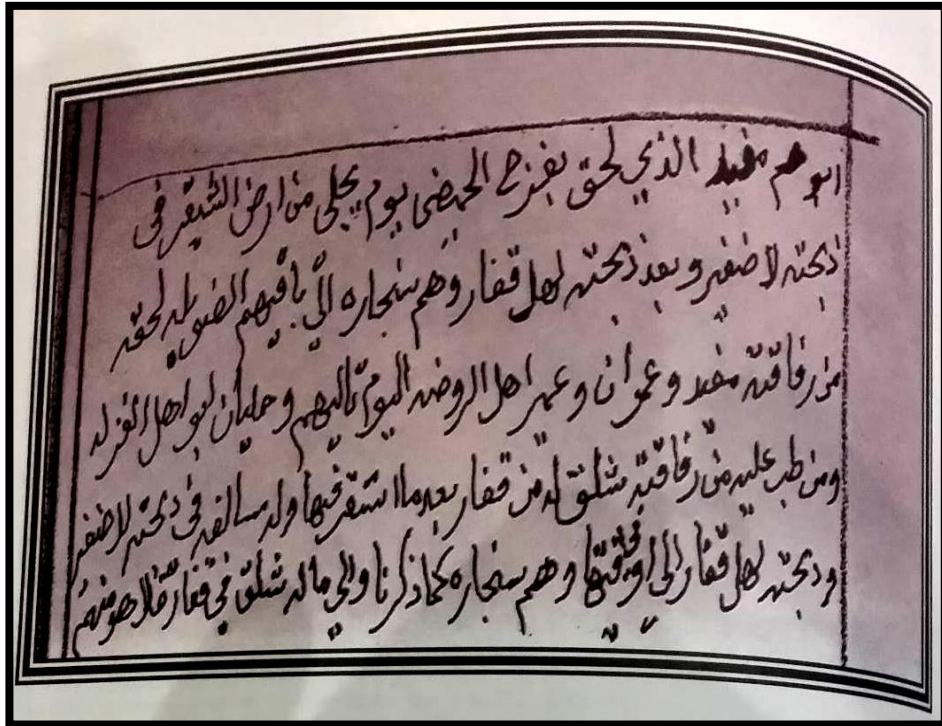 ابوهم مفيد الذي لحق بفزح الحميضي يوم يجلي من ارض الشيقر في
ذبحته لا ضفير وبعد ذبحته لهل قفار وهم سنجاره الي باقيهم الضويله لحقه
من رفاقته مفيد وعموان وعمير اهل الروضه اليوم تاليهم وحليان ابو اهل الغزله
ومن طب عليه من رفاقته شلق له من قفار بعد ما استقر فيها وله سالفه في ذبحته لا ضفير
وذبحته لهل قفار الي وهم سنجاره كما ذكرنا والي ماله شلق في قفار فلا هو منهم